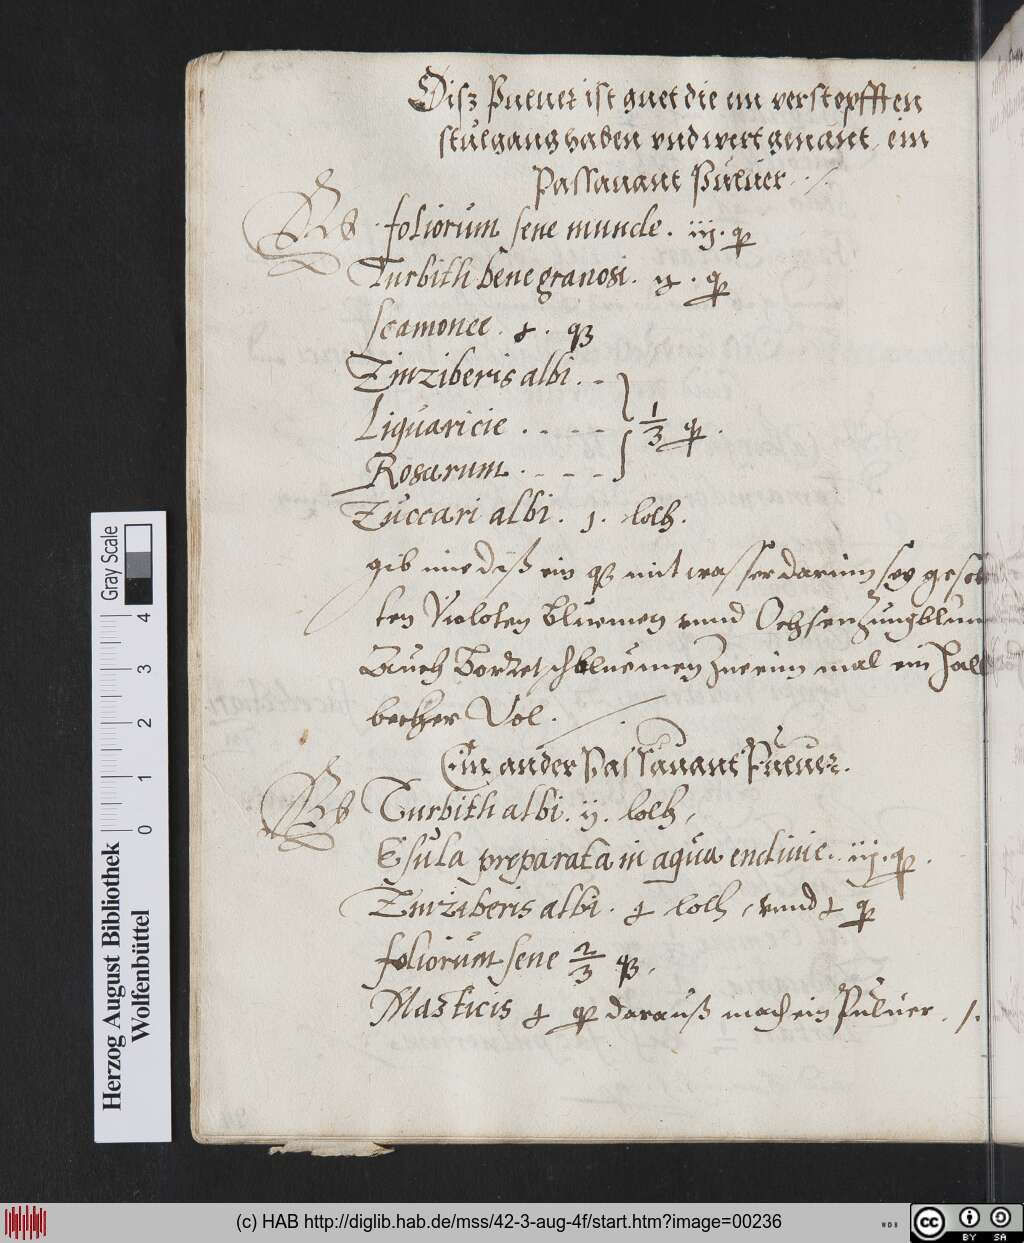 Disz Puluer ist guet die im verstopfften
stulgang haben vnd wert genant ein
Passauant Puluer ./.
foliorum sene munde. iij. qp
Turbith bene granosi. qp
scamonee . qp
Zinziberis albi . -
Liquaricie . - - - - 1/3 qp.
Rosarum . - - -
Zuccari albi . j. loth.
gib ime diß ein qp mit wasser darinn sey gesot
ten Violoten Bluemen vnnd Ochsenzungblum
Auch bluemen ein mal ein hal
becher Vol .
Ein ander Passauant Puluer.
Turbith albi. ij. loth,
Esula preparata in aqua endiuie. iij. qp.
Zinziberis albi. loth, vnnd qp
foliorum sene 2/3 qp,
Masticis qp darauß mach ein Puluer . /.
Gray Scale
4
3
2
1
0
Herzog August Bibliothek
Wolfenbüttel
(c) HAB http://diglib.hab.de/mss/42-3-aug-4f/start.htm?image=00236
WDB
cc
BY SA